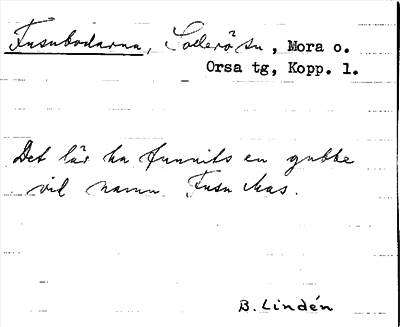 Fusubodarna, Sollerö sn, Mora o.
Orsa tg, Kopp. l.
Det lär ha funnits en gubbe
vid namn Fusu Mas.
B. Lindén